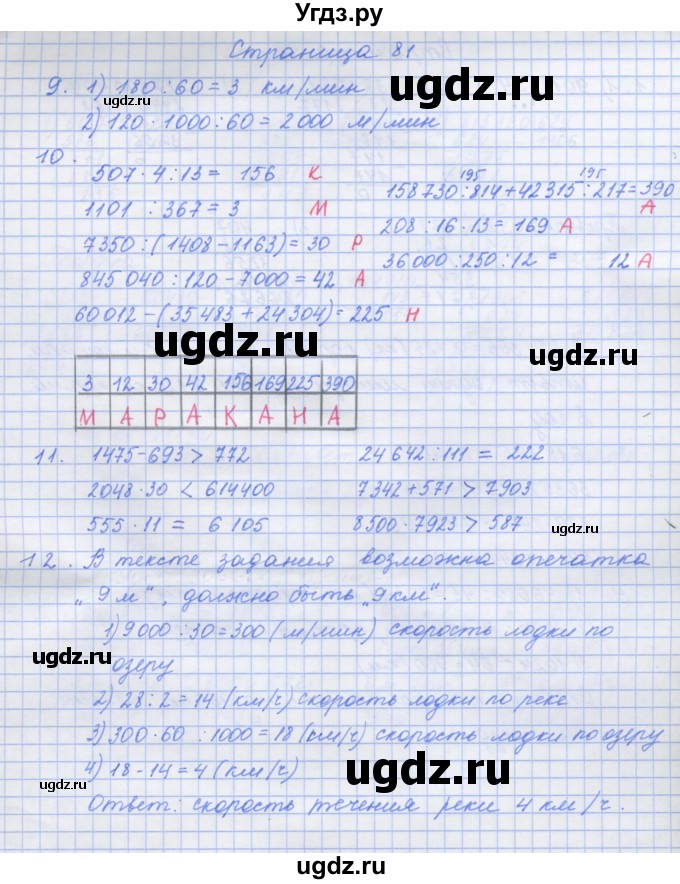 Угдз.ру
Страница 81
9. 1) 180 : 60 = 3 км/мин
ugdz.ru
ugdz.ru
2) 120 · 1000 : 60 = 2000 м/мин
ugdz.ru
10.
507 · 4 : 13 = 156 К
1101 : 367 = 3 М
7350 : (1408 – 1163) = 30 Р
845 040 : 120 – 7000 = 42 А
60012 – (35483 + 24304) = 225 Н
195 195
158730 : 814 + 42315 : 217 = 390
А
208 : 16 · 13 = 169 А
36000 : 250 : 12 = 12 А
ugdz.ru
ugdz.ru
ugdz.ru
ugdz.ru
3 12 30 42 156 169 225 390
М А Р А К А Н А
11.
1475 – 693 > 772
2048 · 30 < 614400
555 · 11 = 6 105
24 642 : 111 = 222
7342 + 571 > 7903
8500 · 7923 > 587
ugdz.ru
ugdz.ru
12. В тексте задания возможна опечатка
„9 м“, должно быть „9 км“.
1) 9000 : 30 = 300 (м/мин) скорость лодки по
озеру
ugdz.ru
ugdz.ru
2) 28 : 2 = 14 (км/ч) скорость лодки по реке
3) 300 · 60 : 1000 = 18 (км/ч) скорость лодки по озеру
4) 18 – 14 = 4 (км/ч)
ugdz.ru
ugdz.ru
Ответ: скорость течения реки 4 км/ч.
ugdz.ru
ugdz.ru